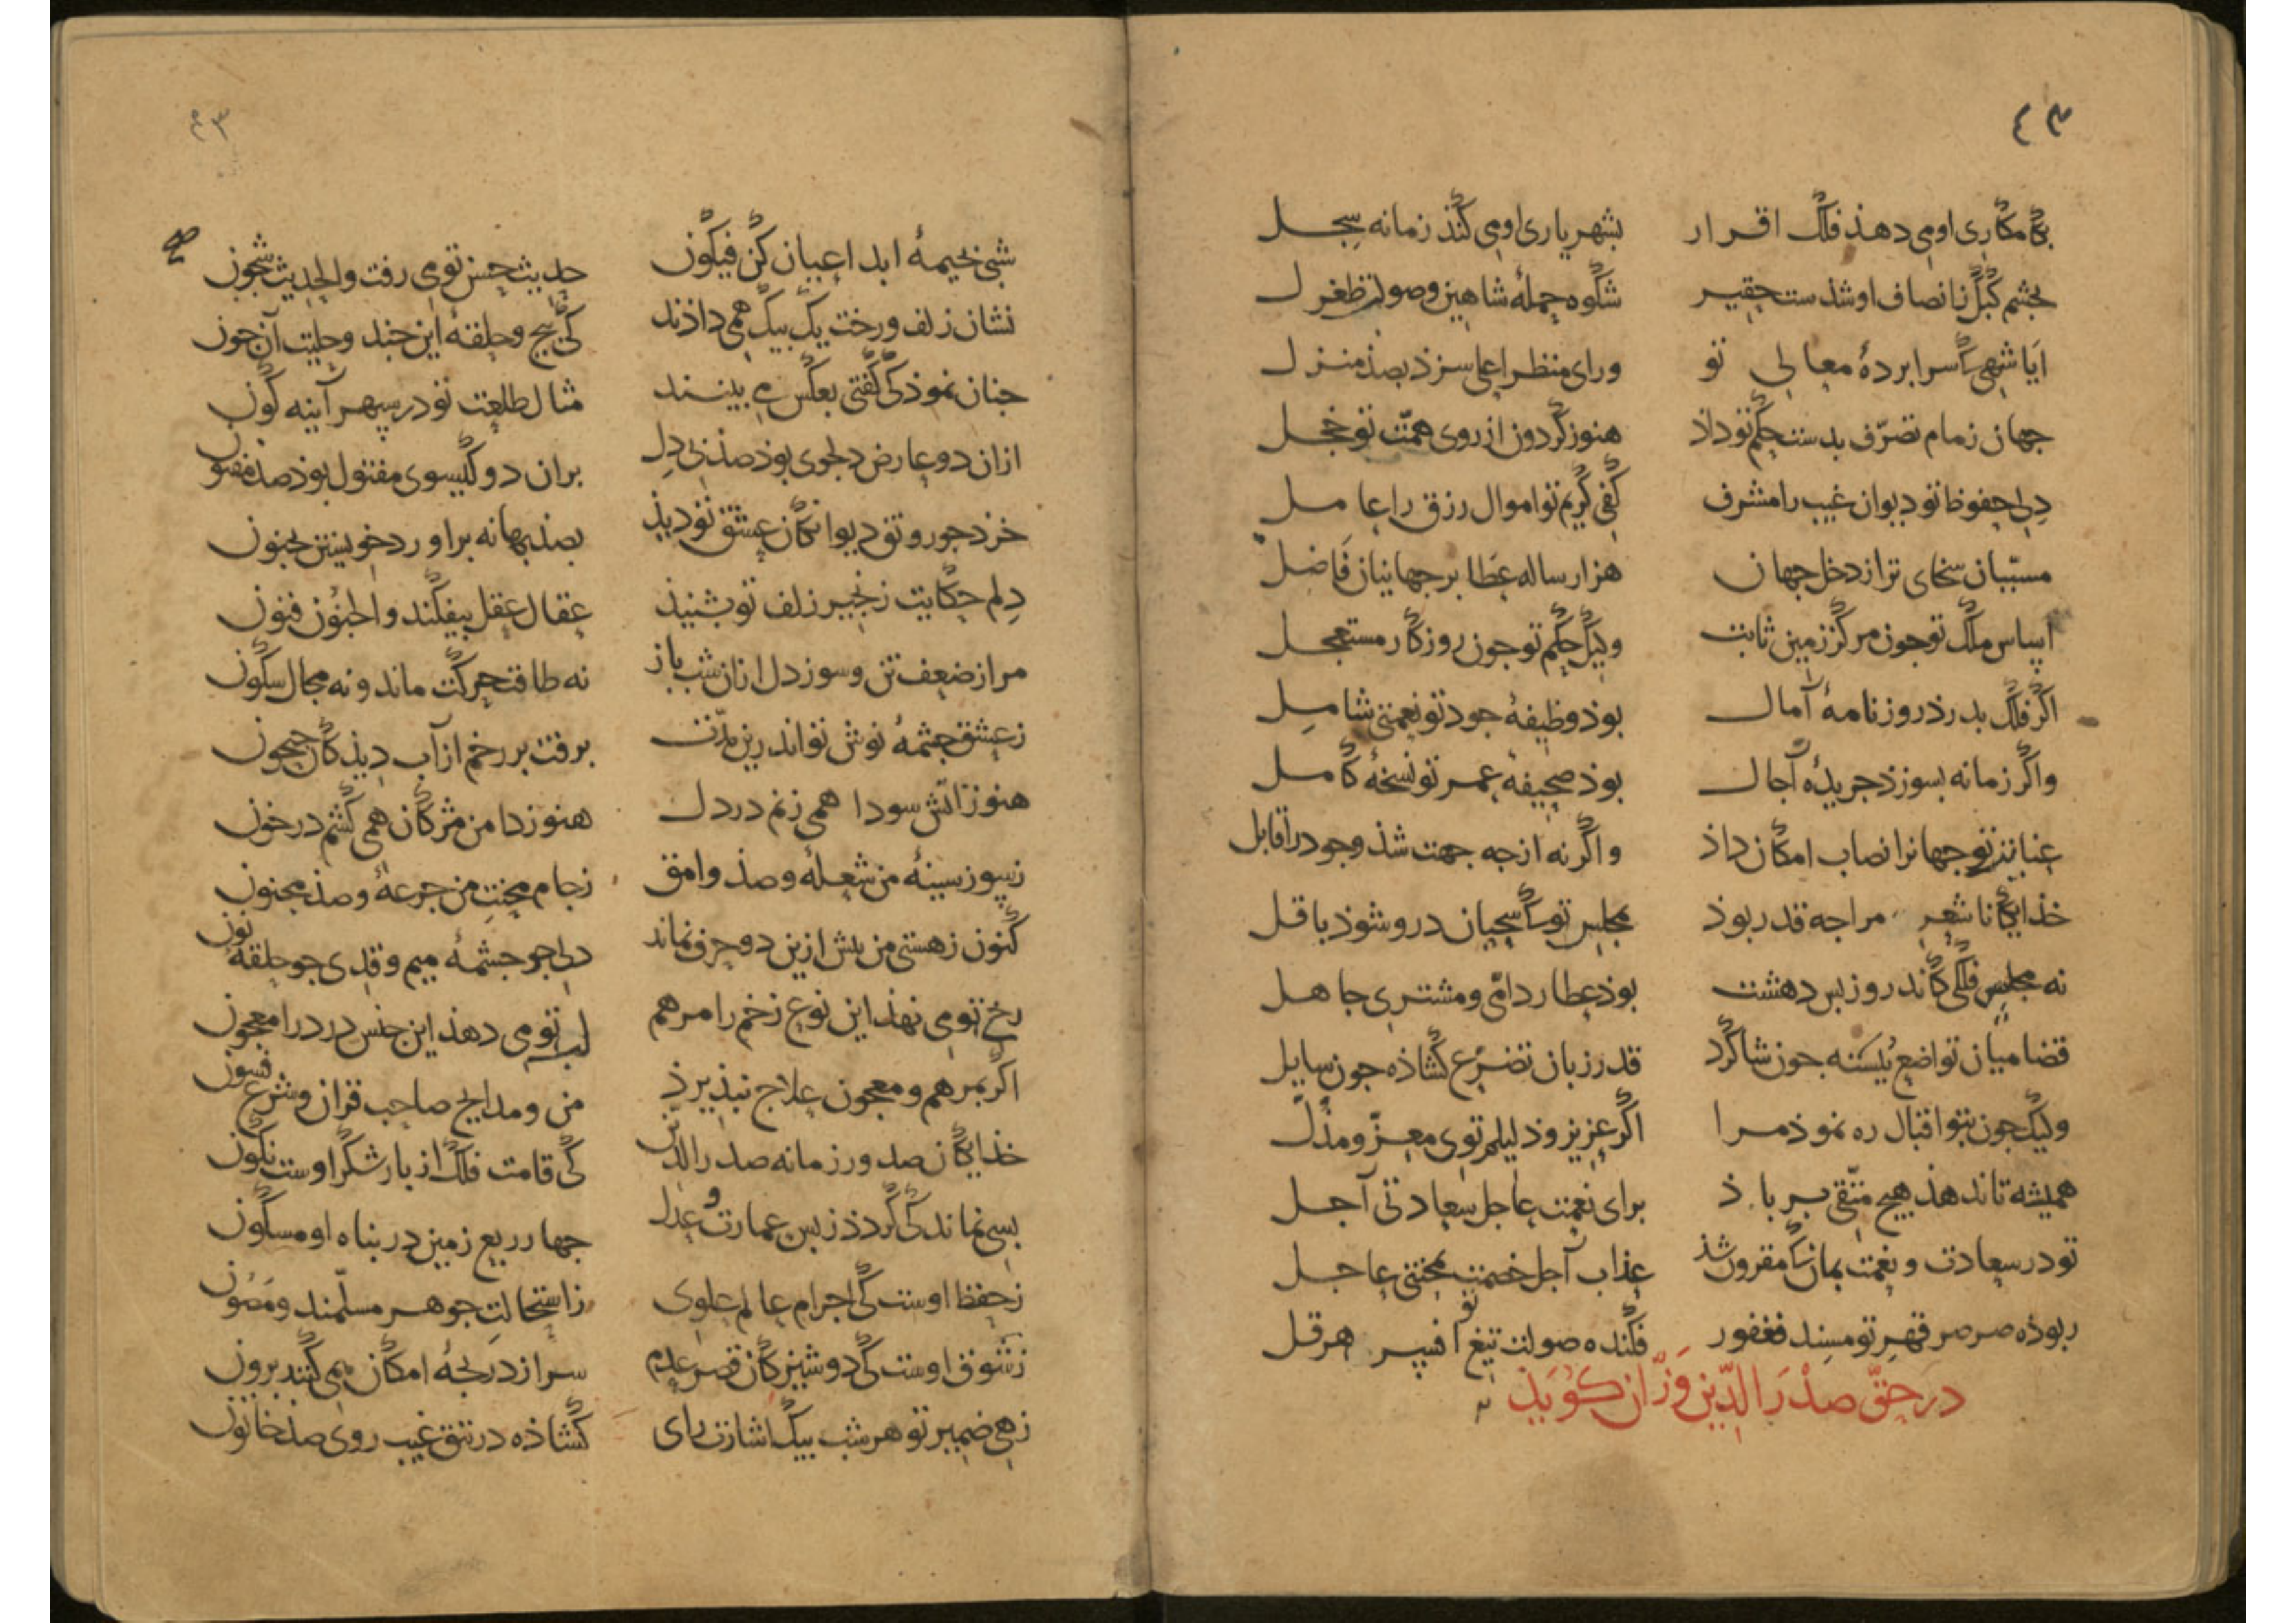 ٤٣
بکامکاری او می دهذ فلک اقرار بشهریاری او می کند زمانه سجل
بجشم کبک ز انصاف او شذست حقیر شکوه حملهٔ شاهین و صولت طغرل
ایا شهی کسرابردهٔ معالی تو ورای منظر اعلی سزذ بصذ منزل
جهان زمام تصرّف بدست حکم تو داذ هنوز کردون از روی همّت تو خجل
دل حفوظ تو دیوان غیب را مشرف کف کریم تو اموال رزق را عامل
مسبّبان سخای تر از دخل جهان هزار ساله عطا بر جهانیان فاضل
اساس ملک تو جون مرکز زمین ثابت ولیک حکم تو جون روزکار مستعجل
اکر فلک بدرذ روزنامهٔ آمال بوذ وظیفهٔ جود تو نعمتی شامل
واکر زمانه بسوزذ جریدهٔ آجال بوذ صحیفهٔ عمر تو نسخهٔ کامل
تو جهانرا نصاب امکان داذ واکر نه از جه جهت شذ وجود را قابل
خذایکانا شعر مراجه قدر بوذ بمجلس تو کسحبان درو شوذ باقل
نه مجلس فلکی کاندرو ز بس دهشت بوذ عطارد امّی و مشتری جاهل
قضا میان تواضع ببسته جون شاکرد قدر زبان تضرّع کشاذه جون سایل
ولیک جون بتو اقبال ره نموذ مرا اکر عزیز و ذلیلم توی معزّ و مذلّ
همیشه تا ندهذ هیج متّقی بر باذ برای نعمت عاجل سعادتی آجل
تو در سعادت و نعمت بمان کمقرون شذ عذاب آجل خصمت بمحنتی عاجل
ربوذه صرصر قهر تو مسند فغفور فکنده صولت تیغ تو افسر هرقل
در حقّ صدر الدّین وزّان کوید
٤٣
شبی بخیمهٔ ابداعیان کن فیکون حدیث حسن تو می رفت والحدیث شجون
نشان زلف و رخت یک بیک همی داذند کی بیج و حلقهٔ این جند و حلیت آن جون
جنان نموذ کی کفتی بعکس می بینند مثال طلعت تو در سپهر آینه کون
ازان دو عارض دلجوی بوذ صذ بی دل بران دو کیسوی مفتول بوذ صذ مفتون
خرد جو رونق دیوانکان عشق تو دیذ بصذ بهانه براورد خویشتن بجنون
دلم حکایت زنجیر زلف تو بشنیذ عقال عقل بیفکند والجنون فنون
مرا ز ضعف تن و سوز دل ازان شب باز نه طاقت حرکت ماند و نه مجال سکون
ز عشق جشمهٔ نوش تو اندرین مدّت برفت بر رخم از آب دیذکان جیحون
هنوز زآتش سودا همی زنم در دل هنوز دامن مژکان همی کشم در خون
ز سوز سینهٔ من شعلهٔ و صذ وامق ز جام محنت من جرعهٔ و صذ مجنون
کنون ز هستی من بش ازین دو حرف نماند دلی جو جشمهٔ میم و قدی جو حلقهٔ نون
رخ تو می نهذ این نوع زخم را مرهم لب تو می دهذ این جنس درد را معجون
اکر بمرهم و معجون علاج نبذیرذ من و مدایح صاحب قران و شرع فسون
خذایکان صدور زمانه صدر الدّین کی قامت فلک از بار شکر اوست نکون
بسی نماند کی کردذ ز بس عمارت و عدل جهار ربع زمین در بناه او مسکون
ز حفظ اوست کی اجرام عالم علوی ز استحالت جوهر مسلّمند و مصون
ز شوق اوست کی دوشیزکان قصر عدم سر از دریجهٔ امکان همی کنند برون
زهی ضمیر تو هر شب بیک اشارت رای کشاذه در تتق غیب روی صذ خاتون